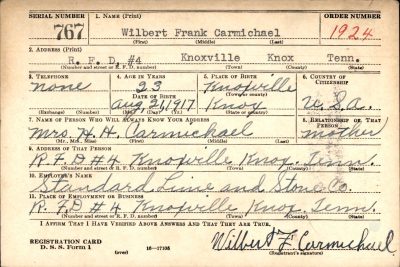 SERIAL NUMBER 1. NAME (Print) ORDER NUMBER
767 Wilbert Frank Carmichael 1924
(First) (Middle) (Last)
2. ADDRESS (Print)
R. F. D. #4 Knoxville Knox Tenn.
(Number and street or R. F. D. number) (Town) (County) (State)
3. TELEPHONE 4. AGE IN YEARS 5. PLACE OF BIRTH 6. COUNTRY OF CITIZENSHIP
none 23 Knoxville
DATE OF BIRTH (Town or county)
Aug 26 1917 Knox U.S.A.
(Exchange) (Number) (Mo.) (Day) (Yr.) (State or country)
7. NAME OF PERSON WHO WILL ALWAYS KNOW YOUR ADDRESS 8. RELATIONSHIP OF THAT PERSON
Mrs. H. H. Carmichael mother
(Mr., Mrs., Miss) (First) (Middle) (Last)
9. ADDRESS OF THAT PERSON
R.F.D #4 Knoxville Knox. Tenn.
(Number and street or R. F. D. number) (Town) (County) (State)
10. EMPLOYER'S NAME
Standard Lime and Stone Co.
11. PLACE OF EMPLOYMENT OR BUSINESS
R. F. D #4 Knoxville Knox. Tenn.
(Number and street or R. F. D. number) (Town) (County) (State)
I AFFIRM THAT I HAVE VERIFIED ABOVE ANSWERS AND THAT THEY ARE TRUE.
Wilbert F Carmichael
REGISTRATION CARD
D. S. S. Form 1 (over) 16—17105 (Registrant's signature)